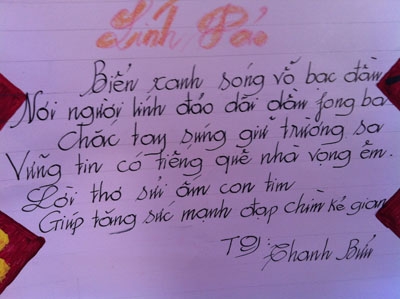 Lính Đảo
Biển xanh sóng vỗ bạc đầu
Nơi người lính đảo dãi dầm fong ba
Chắc tay súng giữ trường sa
Vững tin có tiếng quê nhà vọng êm.
Lời thơ sưởi ấm con tim
Giúp tăng sức mạnh đạp chìm kẻ gian
TG:
Thanh Bửu